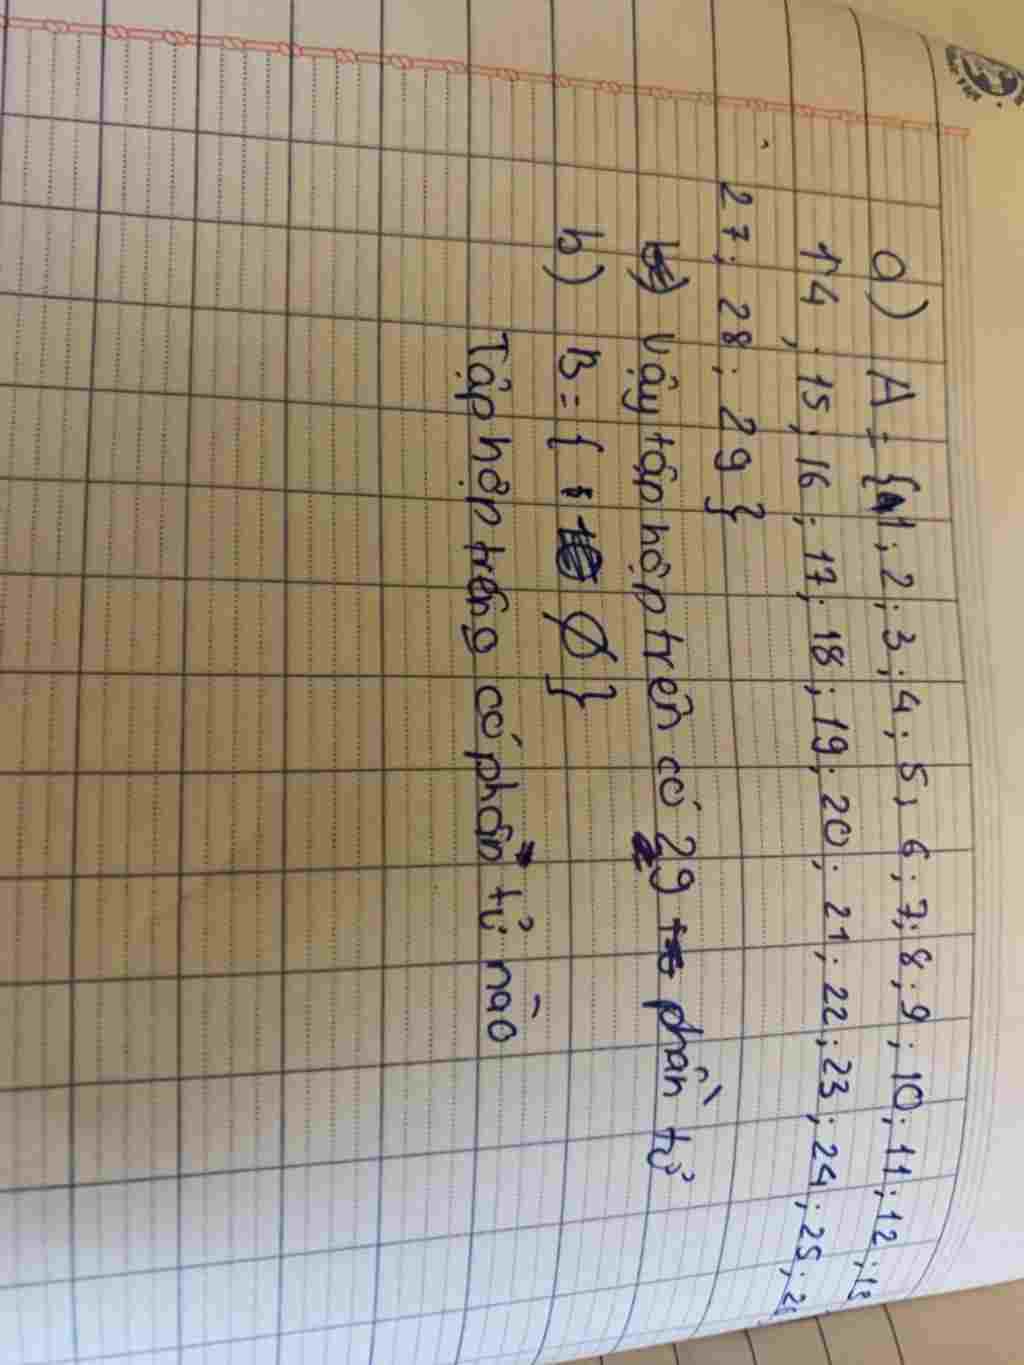 a) A = {1; 2; 3; 4; 5; 6; 7; 8; 9; 10; 11; 12; 13
14; 15; 16; 17; 18; 19; 20; 21; 22; 23; 24; 25; 26
27; 28; 29}
Vậy tập hợp trên có 29 phần tử
b) B = { Ø }
Tập hợp trên có phần tử nào